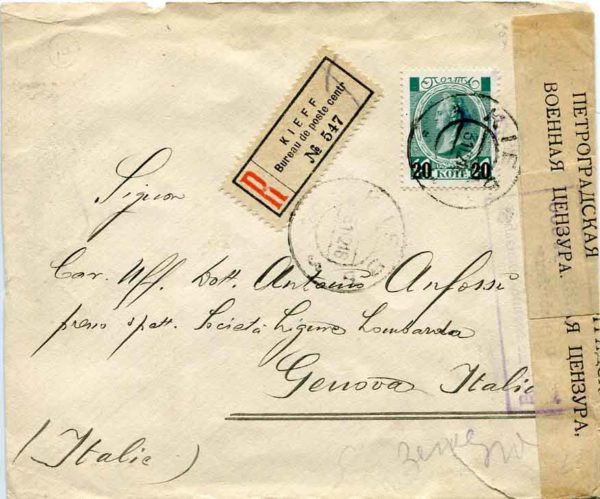 KIEFF
Bureau de poste centr
№ 547
R
ПОЧТА
20 20
КОП
ПЕТРОГРАДСКАЯ
ВОЕННАЯ ЦЕНЗУРА.
Я ЦЕНЗУРА.
Signor
Cav. Uff. Dott. Antonio Anfossi
presso spett. Società Ligure Lombarda
Genova Italie
(Italie)